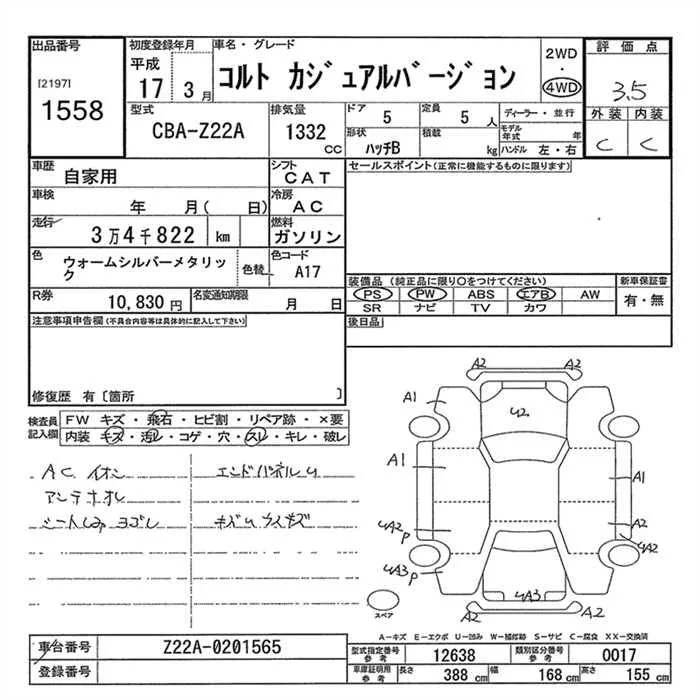 出品番号
[2197]
1558
初度登録年月
平成
17 3月
車名・グレード
コルト カジュアルバージョン
2WD
・
4WD
評価点
3.5
外装 内装
C C
型式
CBA-Z22A
排気量
1332
CC
ドア
5
定員
5 人
ディーラー・並行
形状
ハッチB
積載
kg
モデル年式 年
ハンドル 左・右
車歴
自家用
シフト
CAT
セールスポイント(正常に機能するものに限ります)
車検
年 月( 日)
冷房
AC
走行
3万4千822 km
燃料
ガソリン
色
ウォームシルバーメタリック
色替
色コード
A17
装備品(純正品に限り○をつけてください)
PS PW ABS エアB AW
SR ナビ TV カワ
新車保証書
有・無
R券
10,830 円
名変通知期限
月 日
後日品
注意事項申告欄(不具合内容等は具体的に記入して下さい)
修復歴 有〔箇所 〕
検査員記入欄
FW キズ・飛石・ヒビ割・リペア跡・×要
内装 キズ・汚レ・コゲ・穴・スレ・キレ・破レ
A.C. イオン
エンドパネルU
アンテナオレ
シートしみ ヨゴレ
キズU ウスキズ
A2 A2
A1
U2
A1
A1
UA2P
A2
UA2
UA3P
UA3
A2 A2
スペア
A-キズ E-エクボ U-凹み W-補修跡 S-サビ C-腐食 XX-交換済
車台番号
Z22A-0201565
登録番号
型式指定番号
参考
12638
類別区分番号
参考
0017
車庫証明用
参考
長さ 388 cm
幅 168 cm
高さ 155 cm